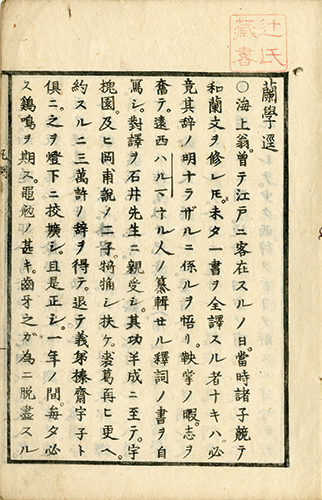 蘭學逕
○海上翁曽テ江戸ニ客在スルノ日。當時諸子競テ
和蘭文ヲ修レ𪜈。未タ一書ヲ全譯スル者ナキハ必
竟其辞ノ明ナラザルニ係ルヲ悟リ。鞅掌ノ暇。志ヲ
奮テ。遠西ハルマナル人ノ纂輯セル釋詞ノ書ヲ自
寫シ。對譯ヲ石井先生ニ親受シ。其功半成ニ至テ。宇
槐園。及ヒ岡甫説ノ二子。犄捔シ扶ケ。裘葛再ヒ更ヘ。
約スルニ三萬許ノ辞ヲ得テ。退テ義弟榛齋宇子ト
俱ニ之ヲ燈下ニ挍讎シ。且是正シ。一年ノ間。毎夕必
ス鷄鳴ヲ期ス。黽勉ノ甚キ。齒牙之ガ為ニ脱盡スル
辻氏
藏書
凡例